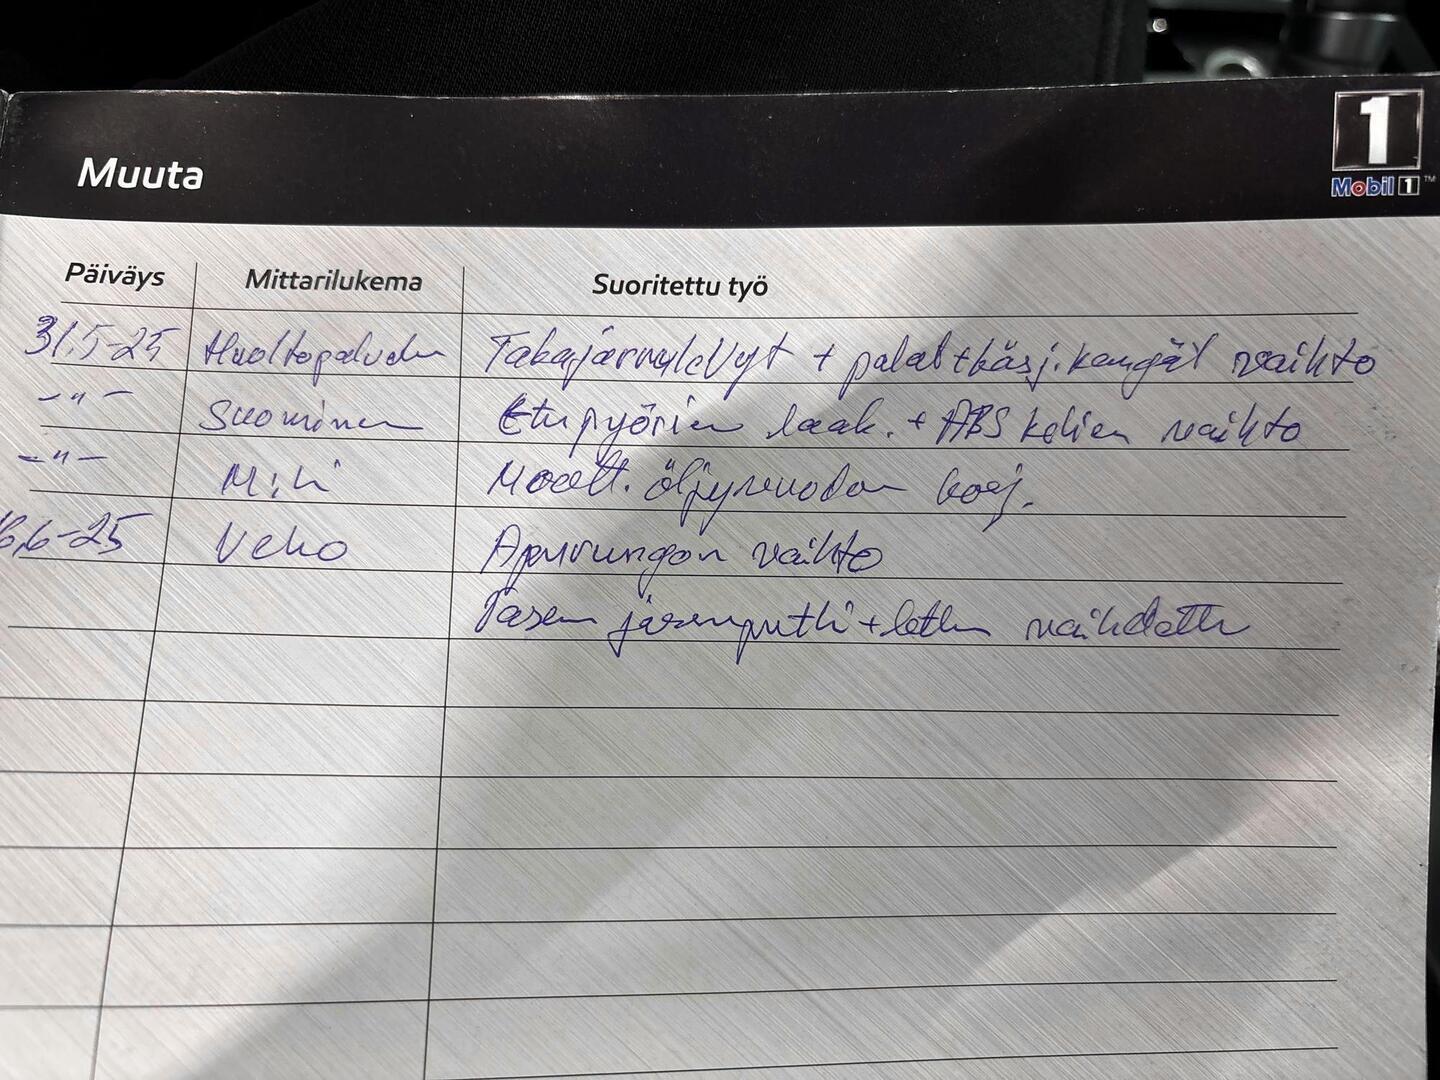 Muuta
1
Mobil 1 ™
Päiväys Mittarilukema Suoritettu työ
31.5-25 Huoltopalvelu Takajarrulevyt + palat + käsj. kengät vaihto
-"- Suominen Etupyörien laak. + ABS kehien vaihto
-"- Moott. öljyvuodon korj.
6.6-25 Veho Apurungon vaihto
Vasen jarruputki + letku vaihdettu